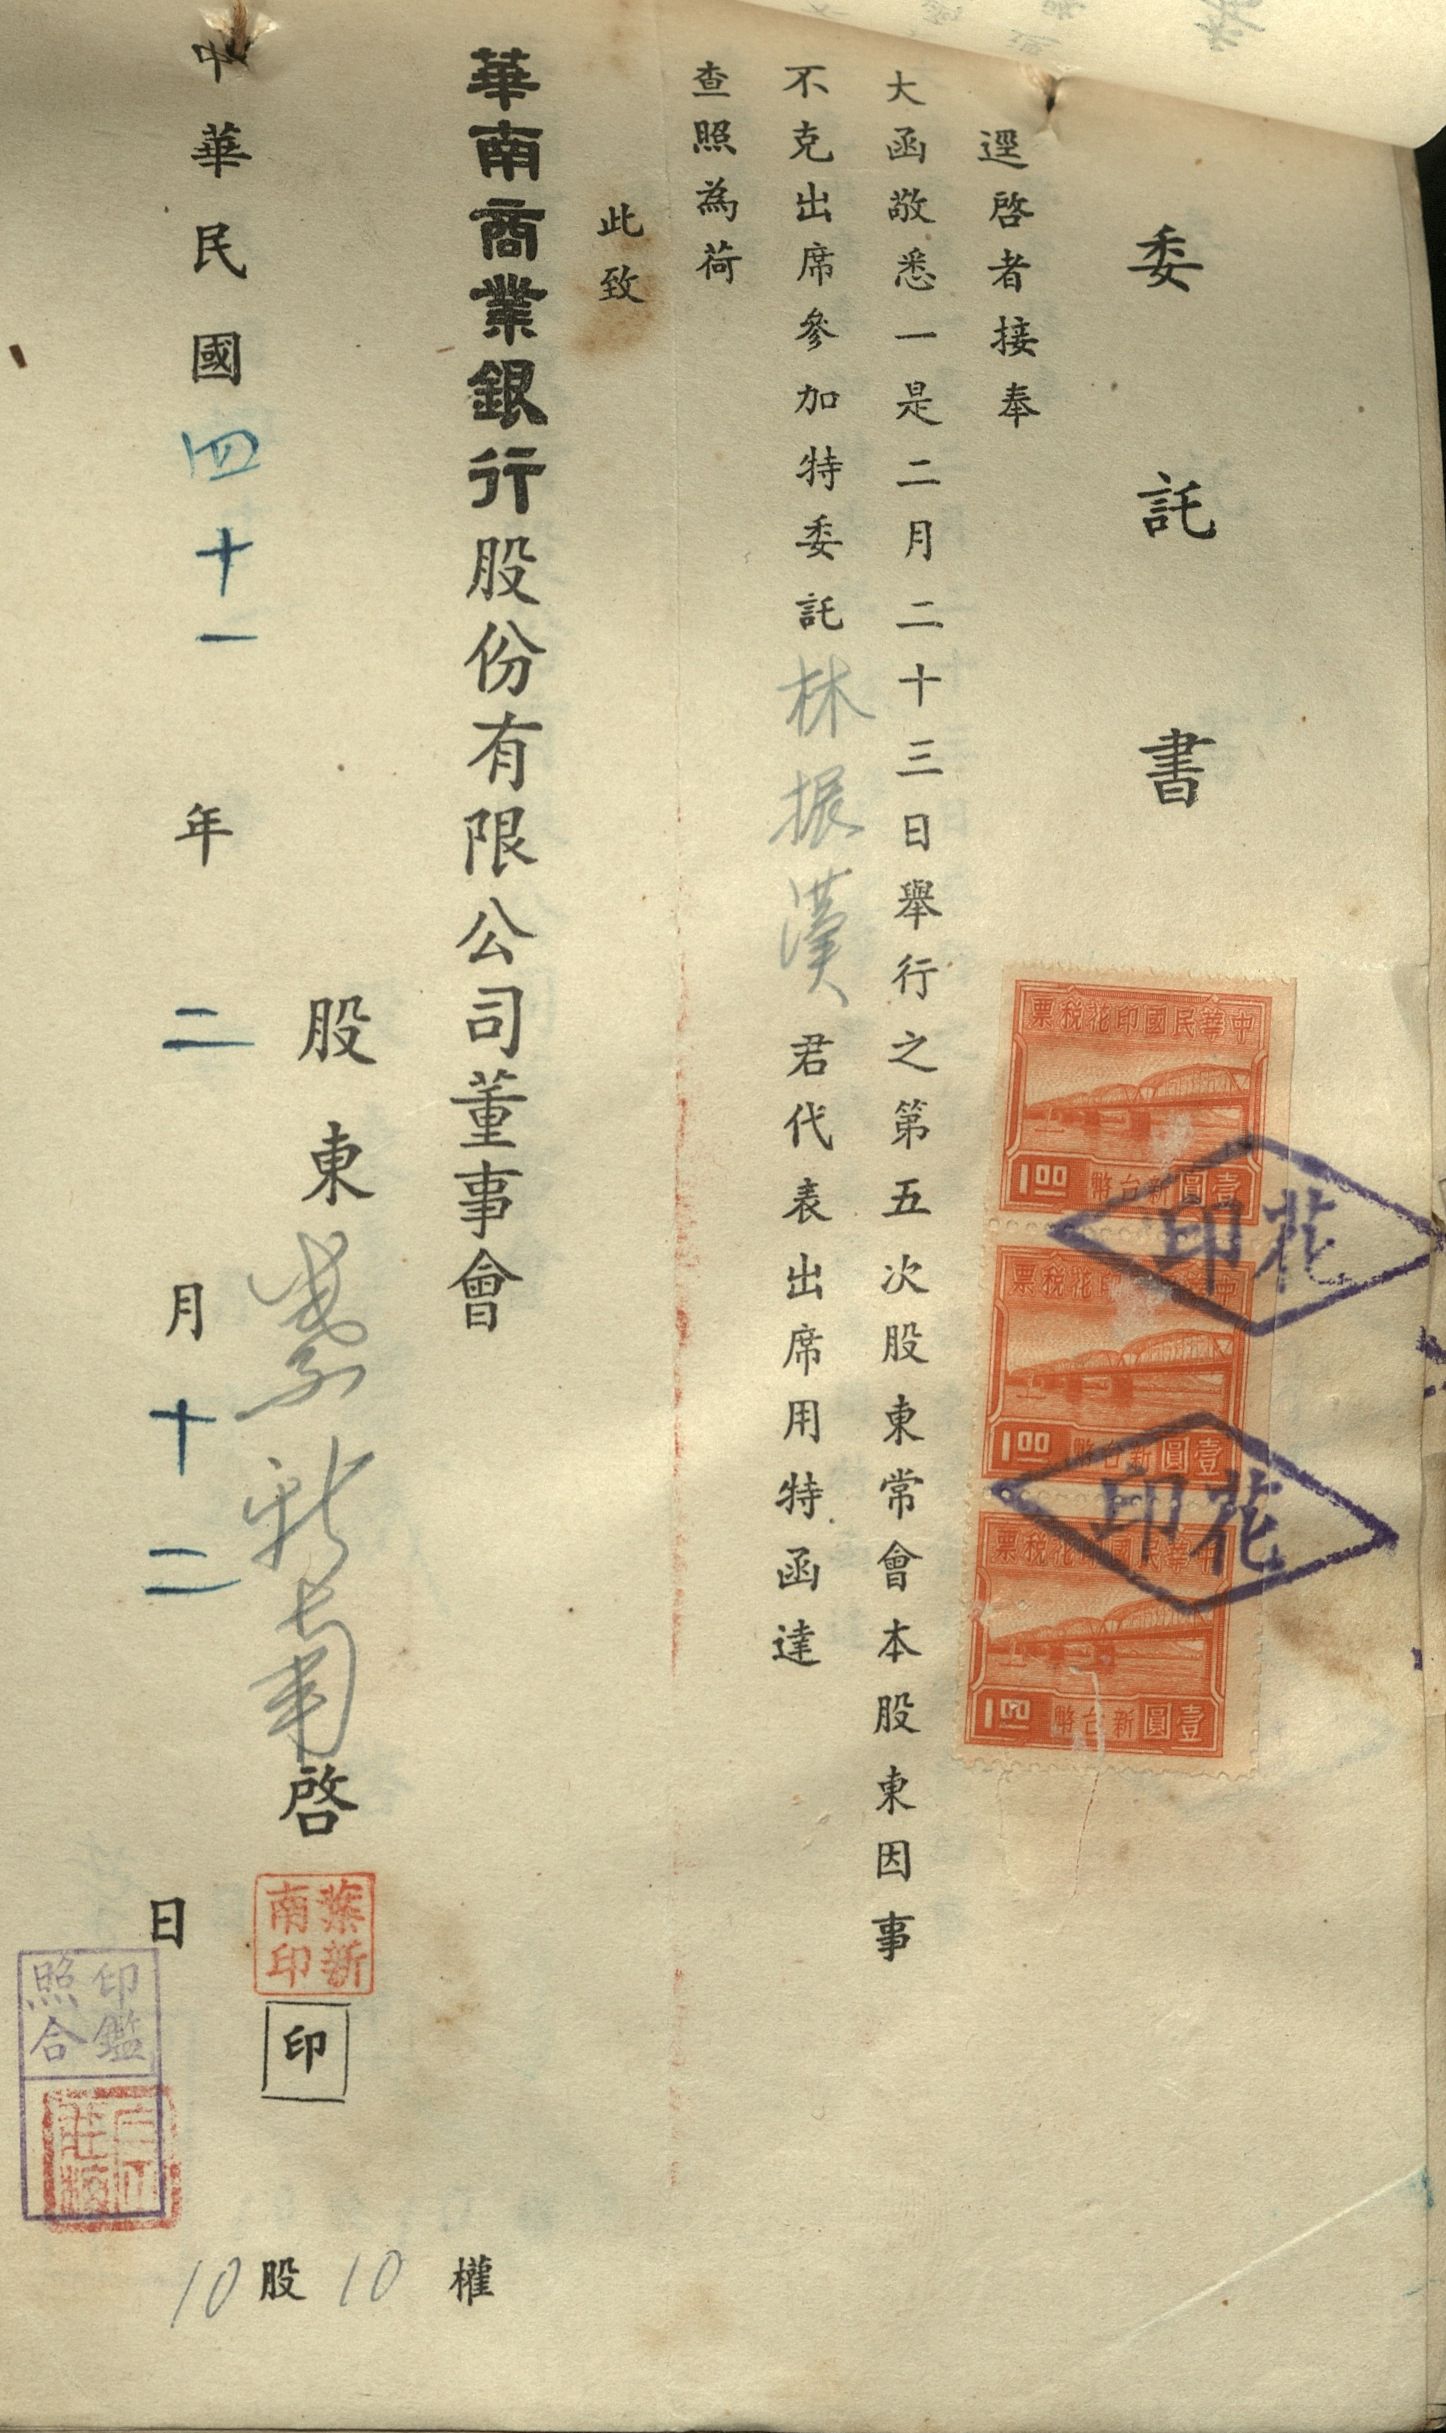 委託書
逕啓者接奉
大函敬悉一是二月二十三日舉行之第五次股東常會本股東因事
不克出席參加特委託林振漢君代表出席用特函達
查照為荷
此致
華南商業銀行股份有限公司董事會
股東葉新南啓
印
中華民國四十一年二月十二日
10股10權
中華民國印花稅票
1.00 壹圓新台幣
中華民國印花稅票
1.00 壹圓新台幣
中華民國印花稅票
1.00 壹圓新台幣
花印
花印
葉新南印
印鑑照合